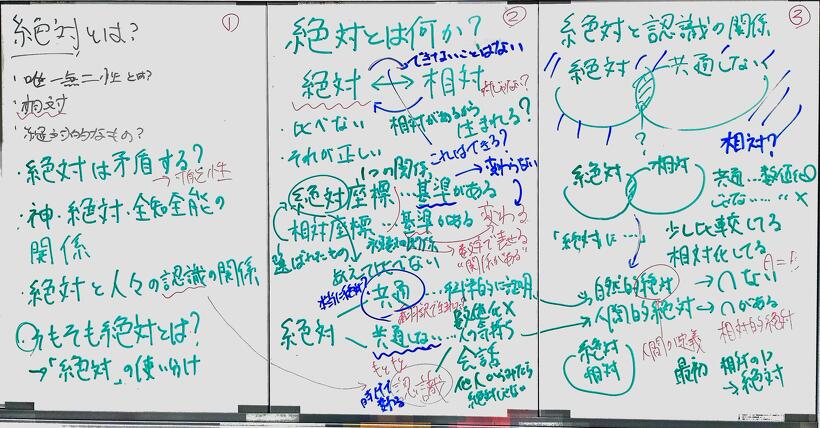 ①
絶対とは?
・唯一無二性とは?
・相対
・絶対的なもの?
・絶対は矛盾する?
→可能性
・神・絶対・全知全能の
関係
・絶対と人々の認識の関係
○そもそも絶対とは?
→「絶対」の使い分け
②
絶対とは何か?
できないことはない
絶対 ↔ 相対
・比べない
相対があるから
生まれる?
・それが正しい
これはできる?
1つの関係
→変わらない
絶対座標…基準がある
相対座標…基準がある
変わる
選ばれたもの
→数字で表せる
"関係がある"
あえて比べない
本当に絶対?
絶対
共通…科学的に証明
共通しない…人の気持ち
会話
もともと
認識
他人からみたら
絶対じゃない
③
絶対と認識の関係
絶対
共通しない
?
相対?
絶対
相対
共通…数値化○
じゃない……×
「絶対に…」
少し比較してる
相対化してる
自然的絶対→∩ない
人間的絶対→∩がある
相対的絶対
人間の定義
絶対
相対
最初
相対の1つ
→絶対